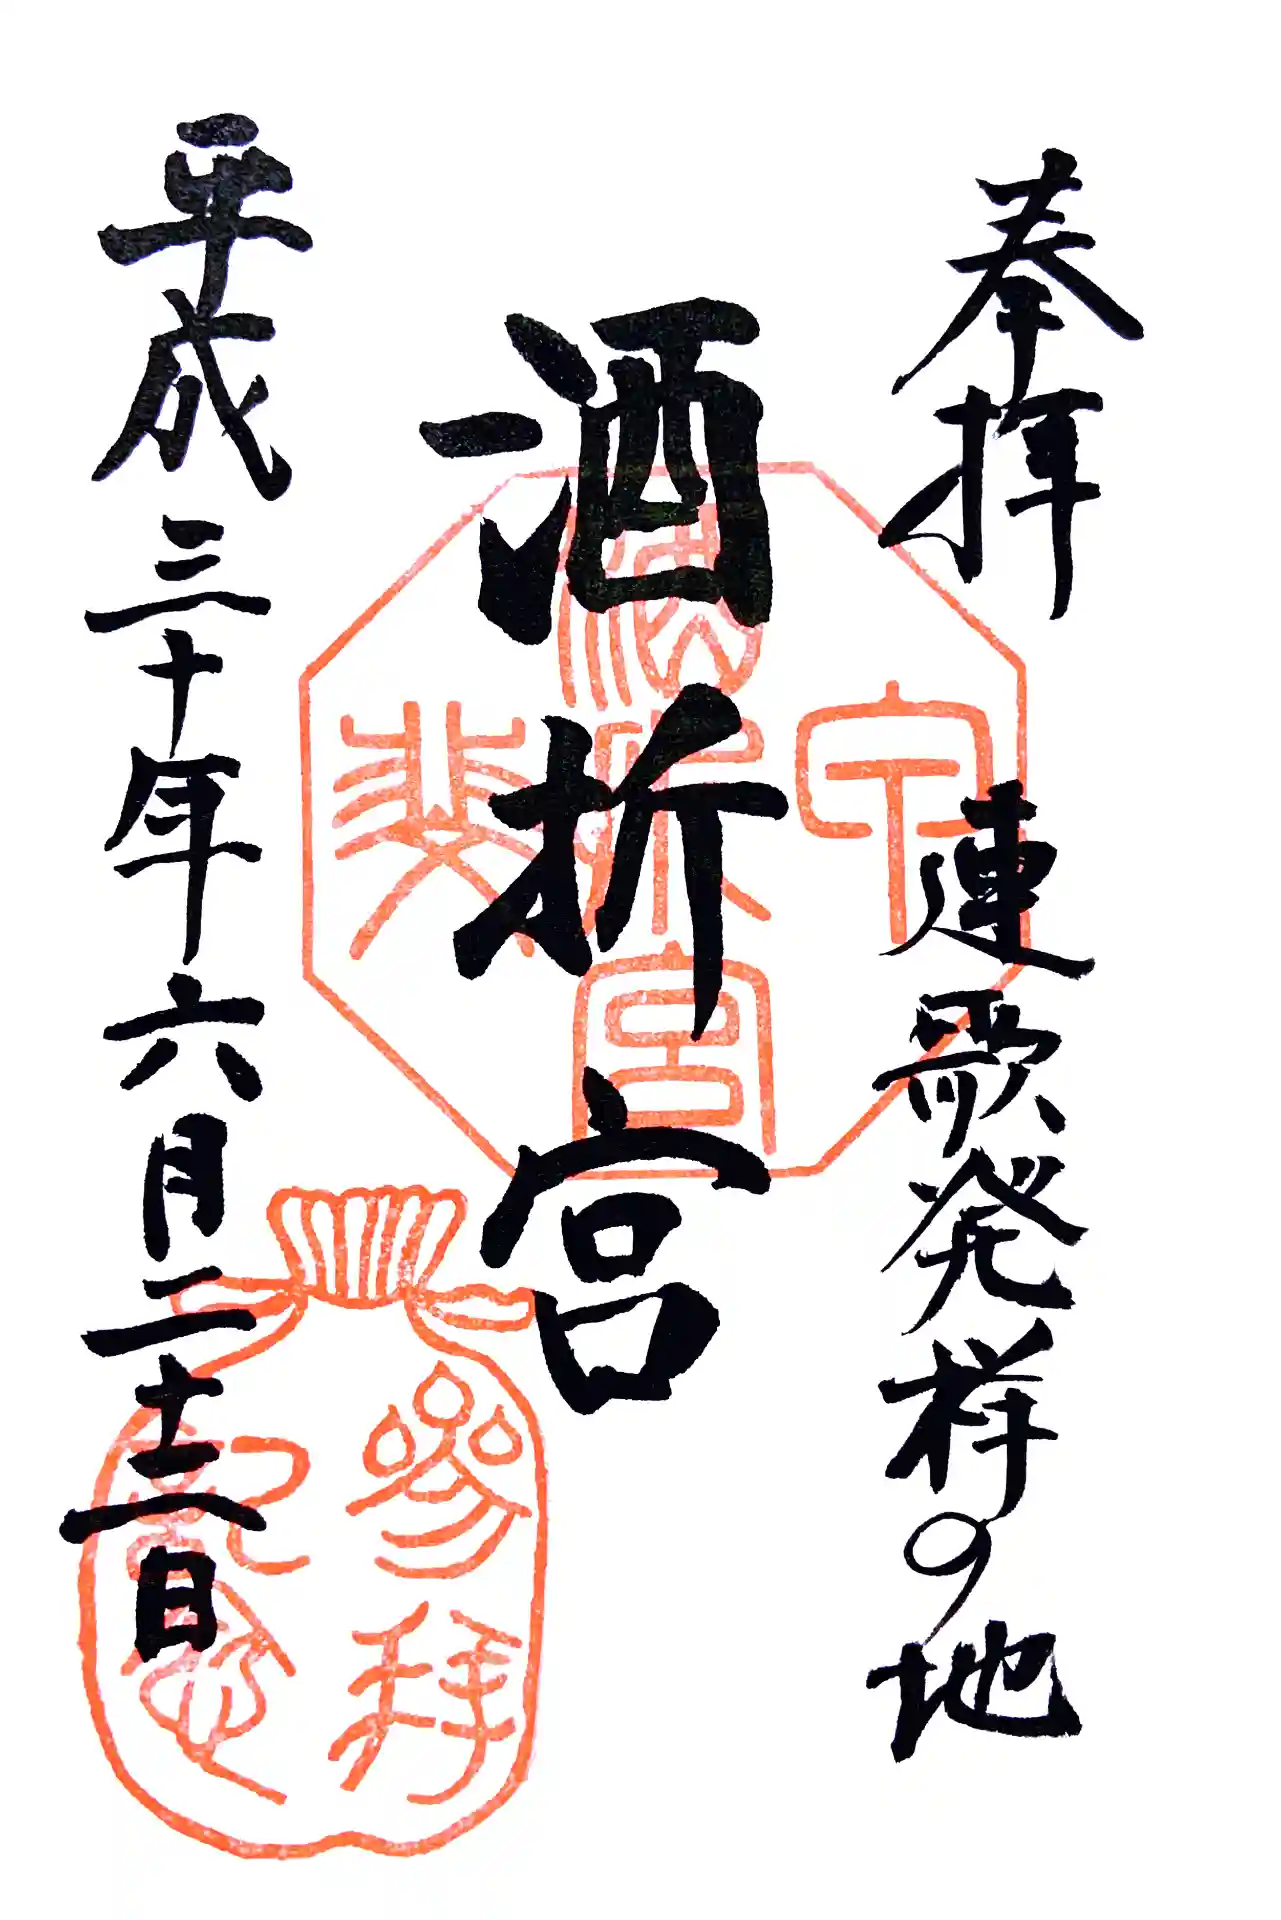 奉拝　連歌発祥の地
酒折宮
平成三十年六月二十二日
甲斐
酒折宮
參拝
記念